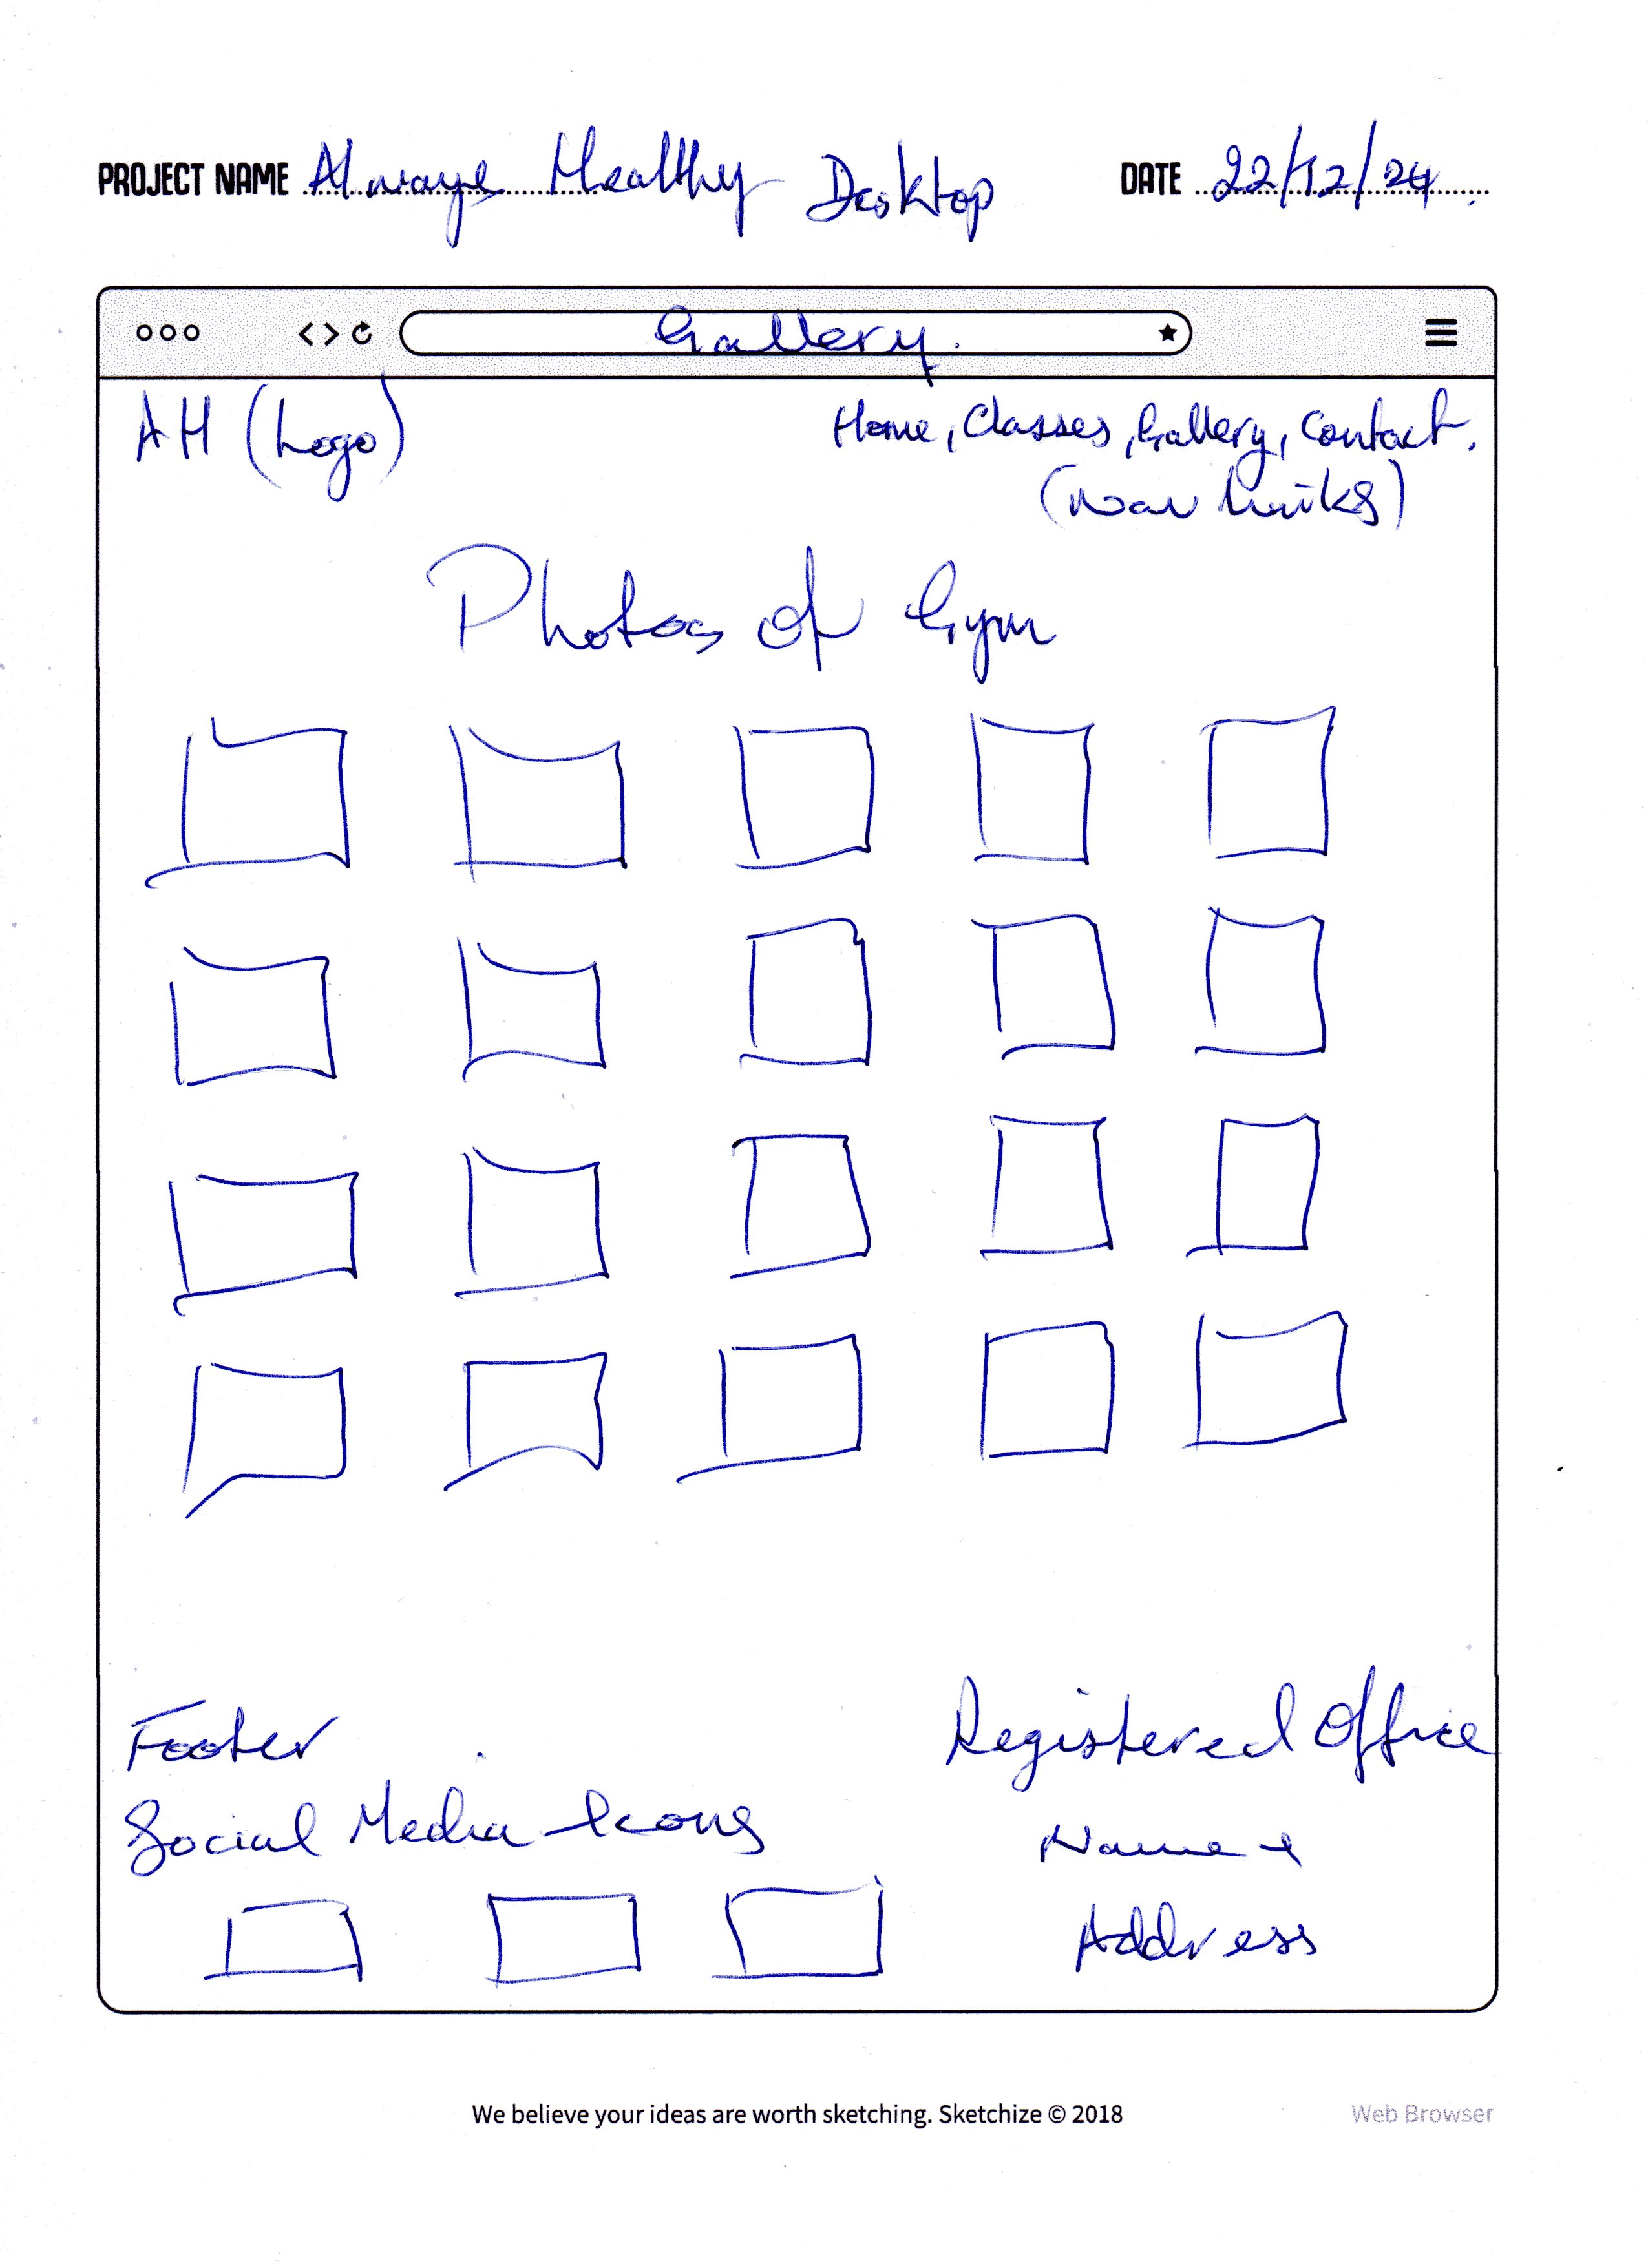 PROJECT NAME Always Healthy Desktop DATE 22/12/24.
Gallery.
AH (Logo) Home, Classes, Gallery, Contact.
(Nav Links)
Photos of Gym
Footer Registered Office
Social Media Icons Name &
Address
We believe your ideas are worth sketching. Sketchize © 2018 Web Browser